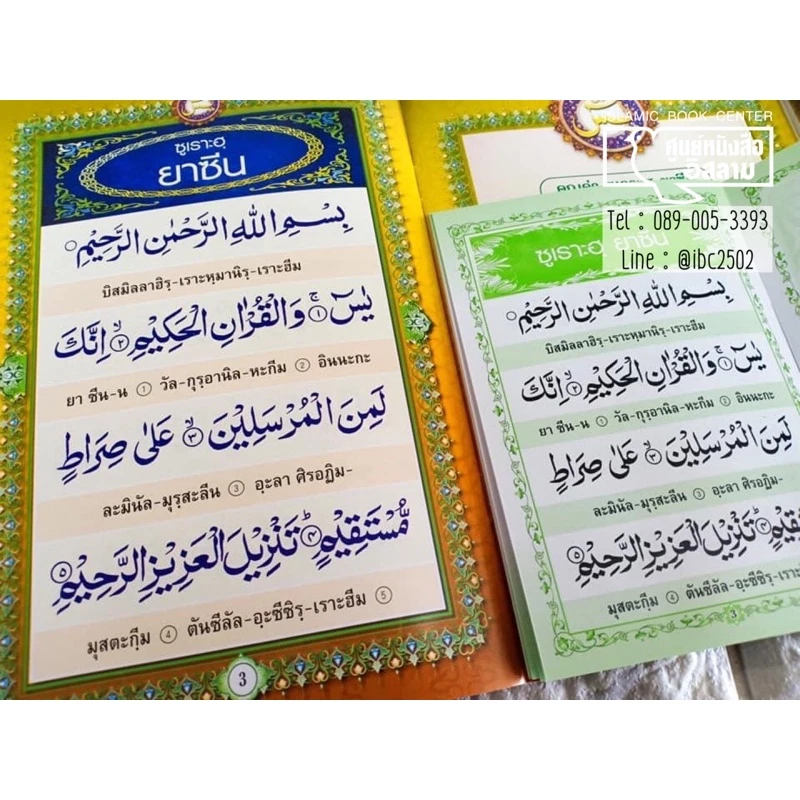 ซูเราะฮฺ
ยาซีน
بِسْمِ اللهِ الرَّحْمٰنِ الرَّحِيْمِ
บิสมิลลาฮิรฺ-เราะหฺมานิรฺ-เราะฮีม
يٰسٓ ۚ ﴿١﴾ وَالْقُرْاٰنِ الْحَكِيْمِ ۙ ﴿٢﴾ اِنَّكَ
ยา ซีน-น ① วัล-กุรฺอานิล-หะกีม ② อินนะกะ
لَمِنَ الْمُرْسَلِيْنَ ۙ ﴿٣﴾ عَلٰى صِرَاطٍ
ละมินัล-มุรฺสะลีน ③ อะลา ศิรอฏิม-
مُّسْتَقِيْمٍ ۗ ﴿٤﴾ تَنْزِيْلَ الْعَزِيْزِ الرَّحِيْمِ ﴿٥﴾
มุสตะกีฺม ④ ตันซีลัล-อะซีซิรฺ-เราะฮีม ⑤
3
ISLAMIC BOOK CENTER
ศูนย์หนังสือ
อิสลาม
Tel : 089-005-3393
Line : @ibc2502
ซูเราะฮฺ ยาซีน
بِسْمِ اللهِ الرَّحْمٰنِ الرَّحِيْمِ
บิสมิลลาฮิรฺ-เราะหฺมานิรฺ-เราะฮีม
يٰسٓ ۚ ﴿١﴾ وَالْقُرْاٰنِ الْحَكِيْمِ ۙ ﴿٢﴾ اِنَّكَ
ยา ซีน-น ① วัล-กุรฺอานิล-หะกีม ② อินนะกะ
لَمِنَ الْمُرْسَلِيْنَ ۙ ﴿٣﴾ عَلٰى صِرَاطٍ
ละมินัล-มุรฺสะลีน ③ อะลา ศิรอฏิม-
تَنْزِيْلَ الْعَزِيْزِ الرَّحِيْمِ ﴿٥﴾
มุสตะกีฺม ④ ตันซีลัล-อะซีซิรฺ-เราะฮีม
3